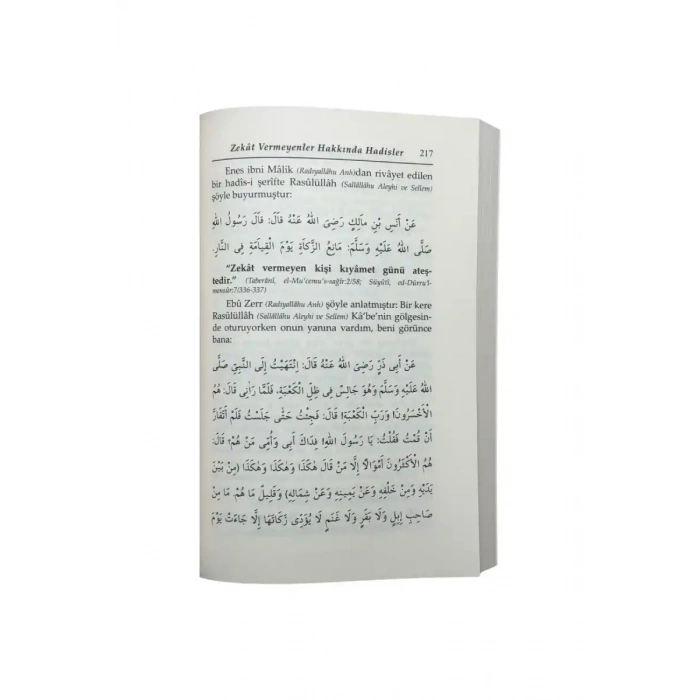 Zekât Vermeyenler Hakkında Hadisler 217
Enes ibni Mâlik (Radıyallâhu Anh)dan rivâyet edilen
bir hadîs-i şerîfte Rasûlüllâh (Sallâllâhu Aleyhi ve Sellem)
şöyle buyurmuştur:
عَنْ أَنَسِ بْنِ مَالِكٍ رَضِيَ اللهُ عَنْهُ قَالَ: قَالَ رَسُولُ اللهِ
صَلَّى اللهُ عَلَيْهِ وَسَلَّمَ: مَانِعُ الزَّكَاةِ يَوْمَ الْقِيَامَةِ فِي النَّارِ.
“Zekât vermeyen kişi kıyâmet günü ateş-
tedir.” (Taberânî, el-Mu‘cemu’s-sağîr:2/58; Süyûtî, ed-Dürru’l-
mensûr:7/336-337)
Ebû Zerr (Radıyallâhu Anh) şöyle anlatmıştır: Bir kere
Rasûlüllâh (Sallâllâhu Aleyhi ve Sellem) Kâ‘be’nin gölgesin-
de oturuyorken onun yanına vardım, beni görünce
bana:
عَنْ أَبِي ذَرٍّ رَضِيَ اللهُ عَنْهُ قَالَ: اِنْتَهَيْتُ إِلَى النَّبِيِّ صَلَّى
اللهُ عَلَيْهِ وَسَلَّمَ وَهُوَ جَالِسٌ فِي ظِلِّ الْكَعْبَةِ، فَلَمَّا رَاٰنِي قَالَ: هُمُ
الْأَخْسَرُونَ! وَرَبِّ الْكَعْبَةِ! قَالَ: فَجِئْتُ حَتَّى جَلَسْتُ فَلَمْ أَتَقَارَّ
أَنْ قُمْتُ فَقُلْتُ: يَا رَسُولَ اللهِ! فِدَاكَ أَبِي وَأُمِّي مَنْ هُمْ؟ قَالَ:
هُمُ الْأَكْثَرُونَ أَمْوَالًا إِلَّا مَنْ قَالَ هٰكَذَا وَهٰكَذَا وَهٰكَذَا (مِنْ بَيْنِ
يَدَيْهِ وَمِنْ خَلْفِهِ وَعَنْ يَمِينِهِ وَعَنْ شِمَالِهِ) وَقَلِيلٌ مَا هُمْ. مَا مِنْ
صَاحِبِ إِبِلٍ وَلَا بَقَرٍ وَلَا غَنَمٍ لَا يُؤَدِّي زَكَاتَهَا إِلَّا جَاءَتْ يَوْمَ